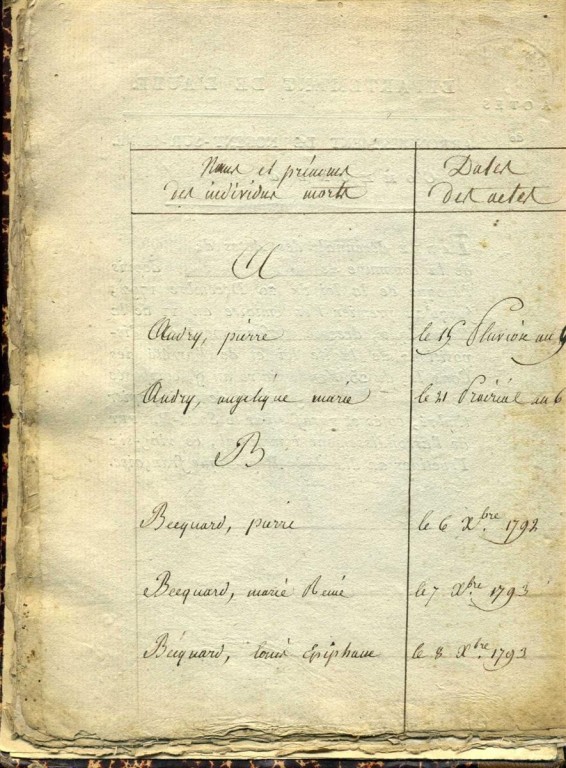 Noms et prénoms
des individus morts
Dates
des actes
A
Audry, pierre
le 15 Pluviôse an
Audry, angelique marie
le 21 Prairial an 6
B
Becquard, pierre
le 6 Xbre 1792
Becquard, marie René
le 7 Xbre 1793
Becquard, louis Epiphane
le 8 Xbre 1793